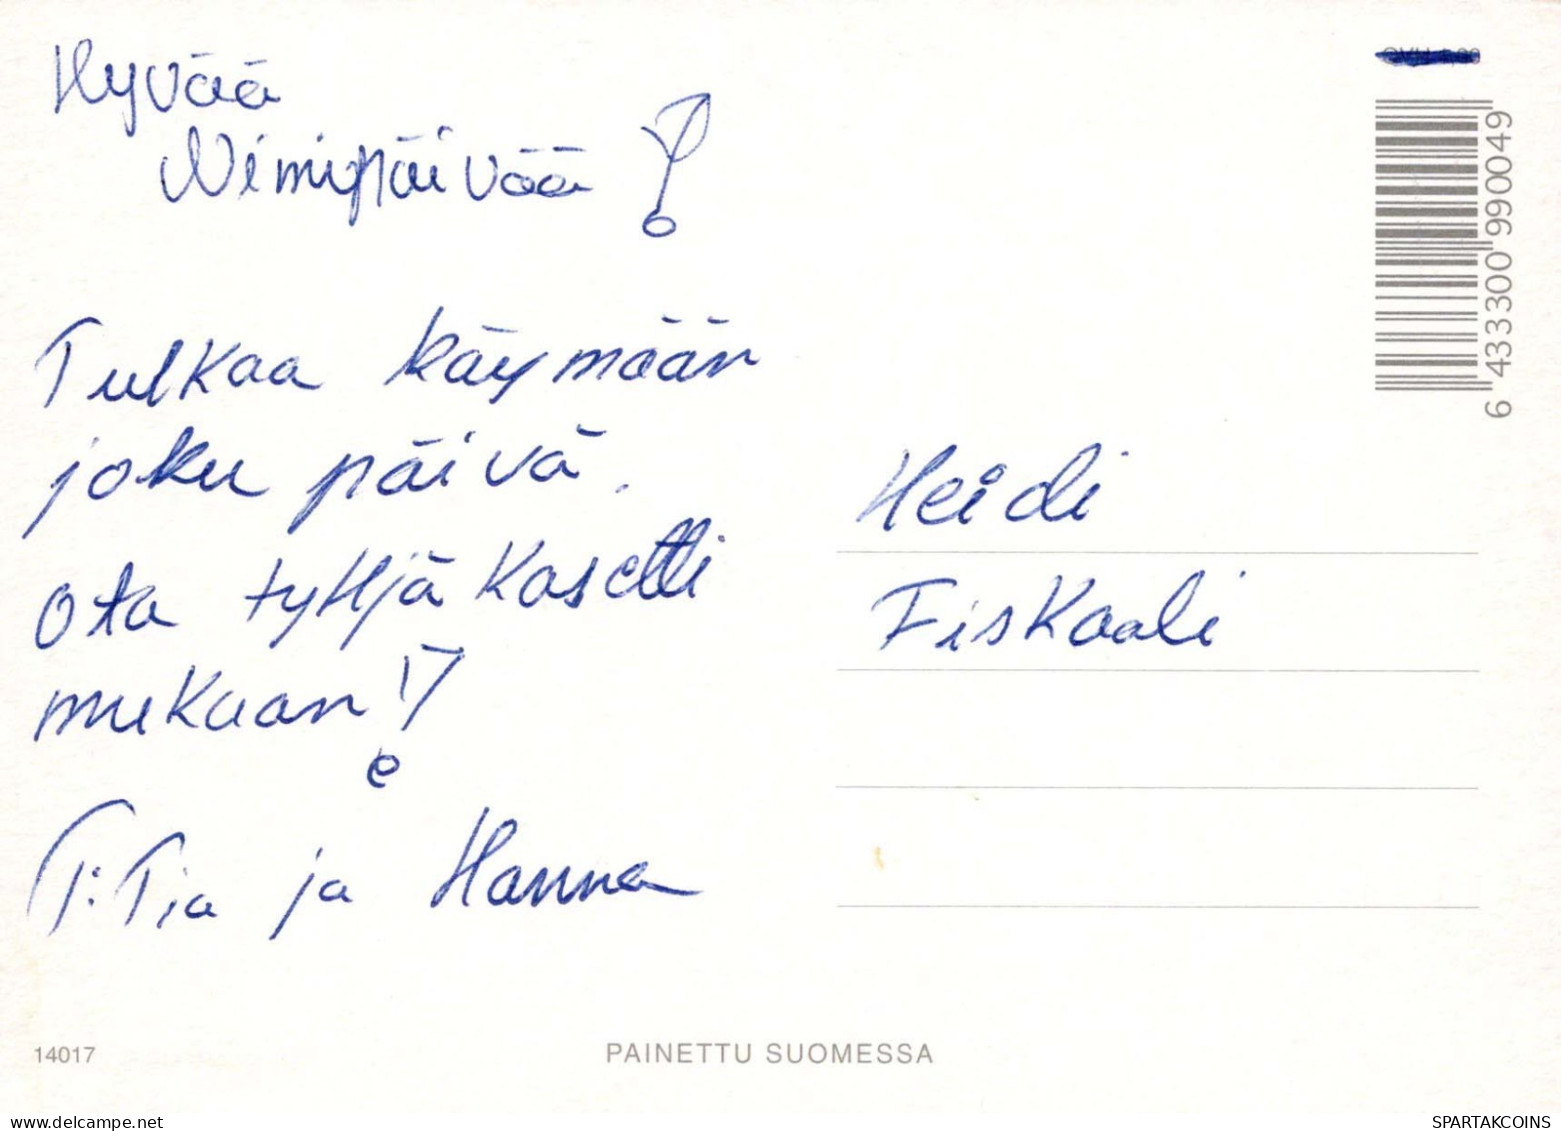 Hyvää
Nimipäivää!
Tulkaa käymään
joku päivä.
Ota tyhjä kasetti
mukaan!
T: Tia ja Hanna
Heidi
Fiskaali
6 433300 990049
14017
PAINETTU SUOMESSA
SPARTAKCOINS